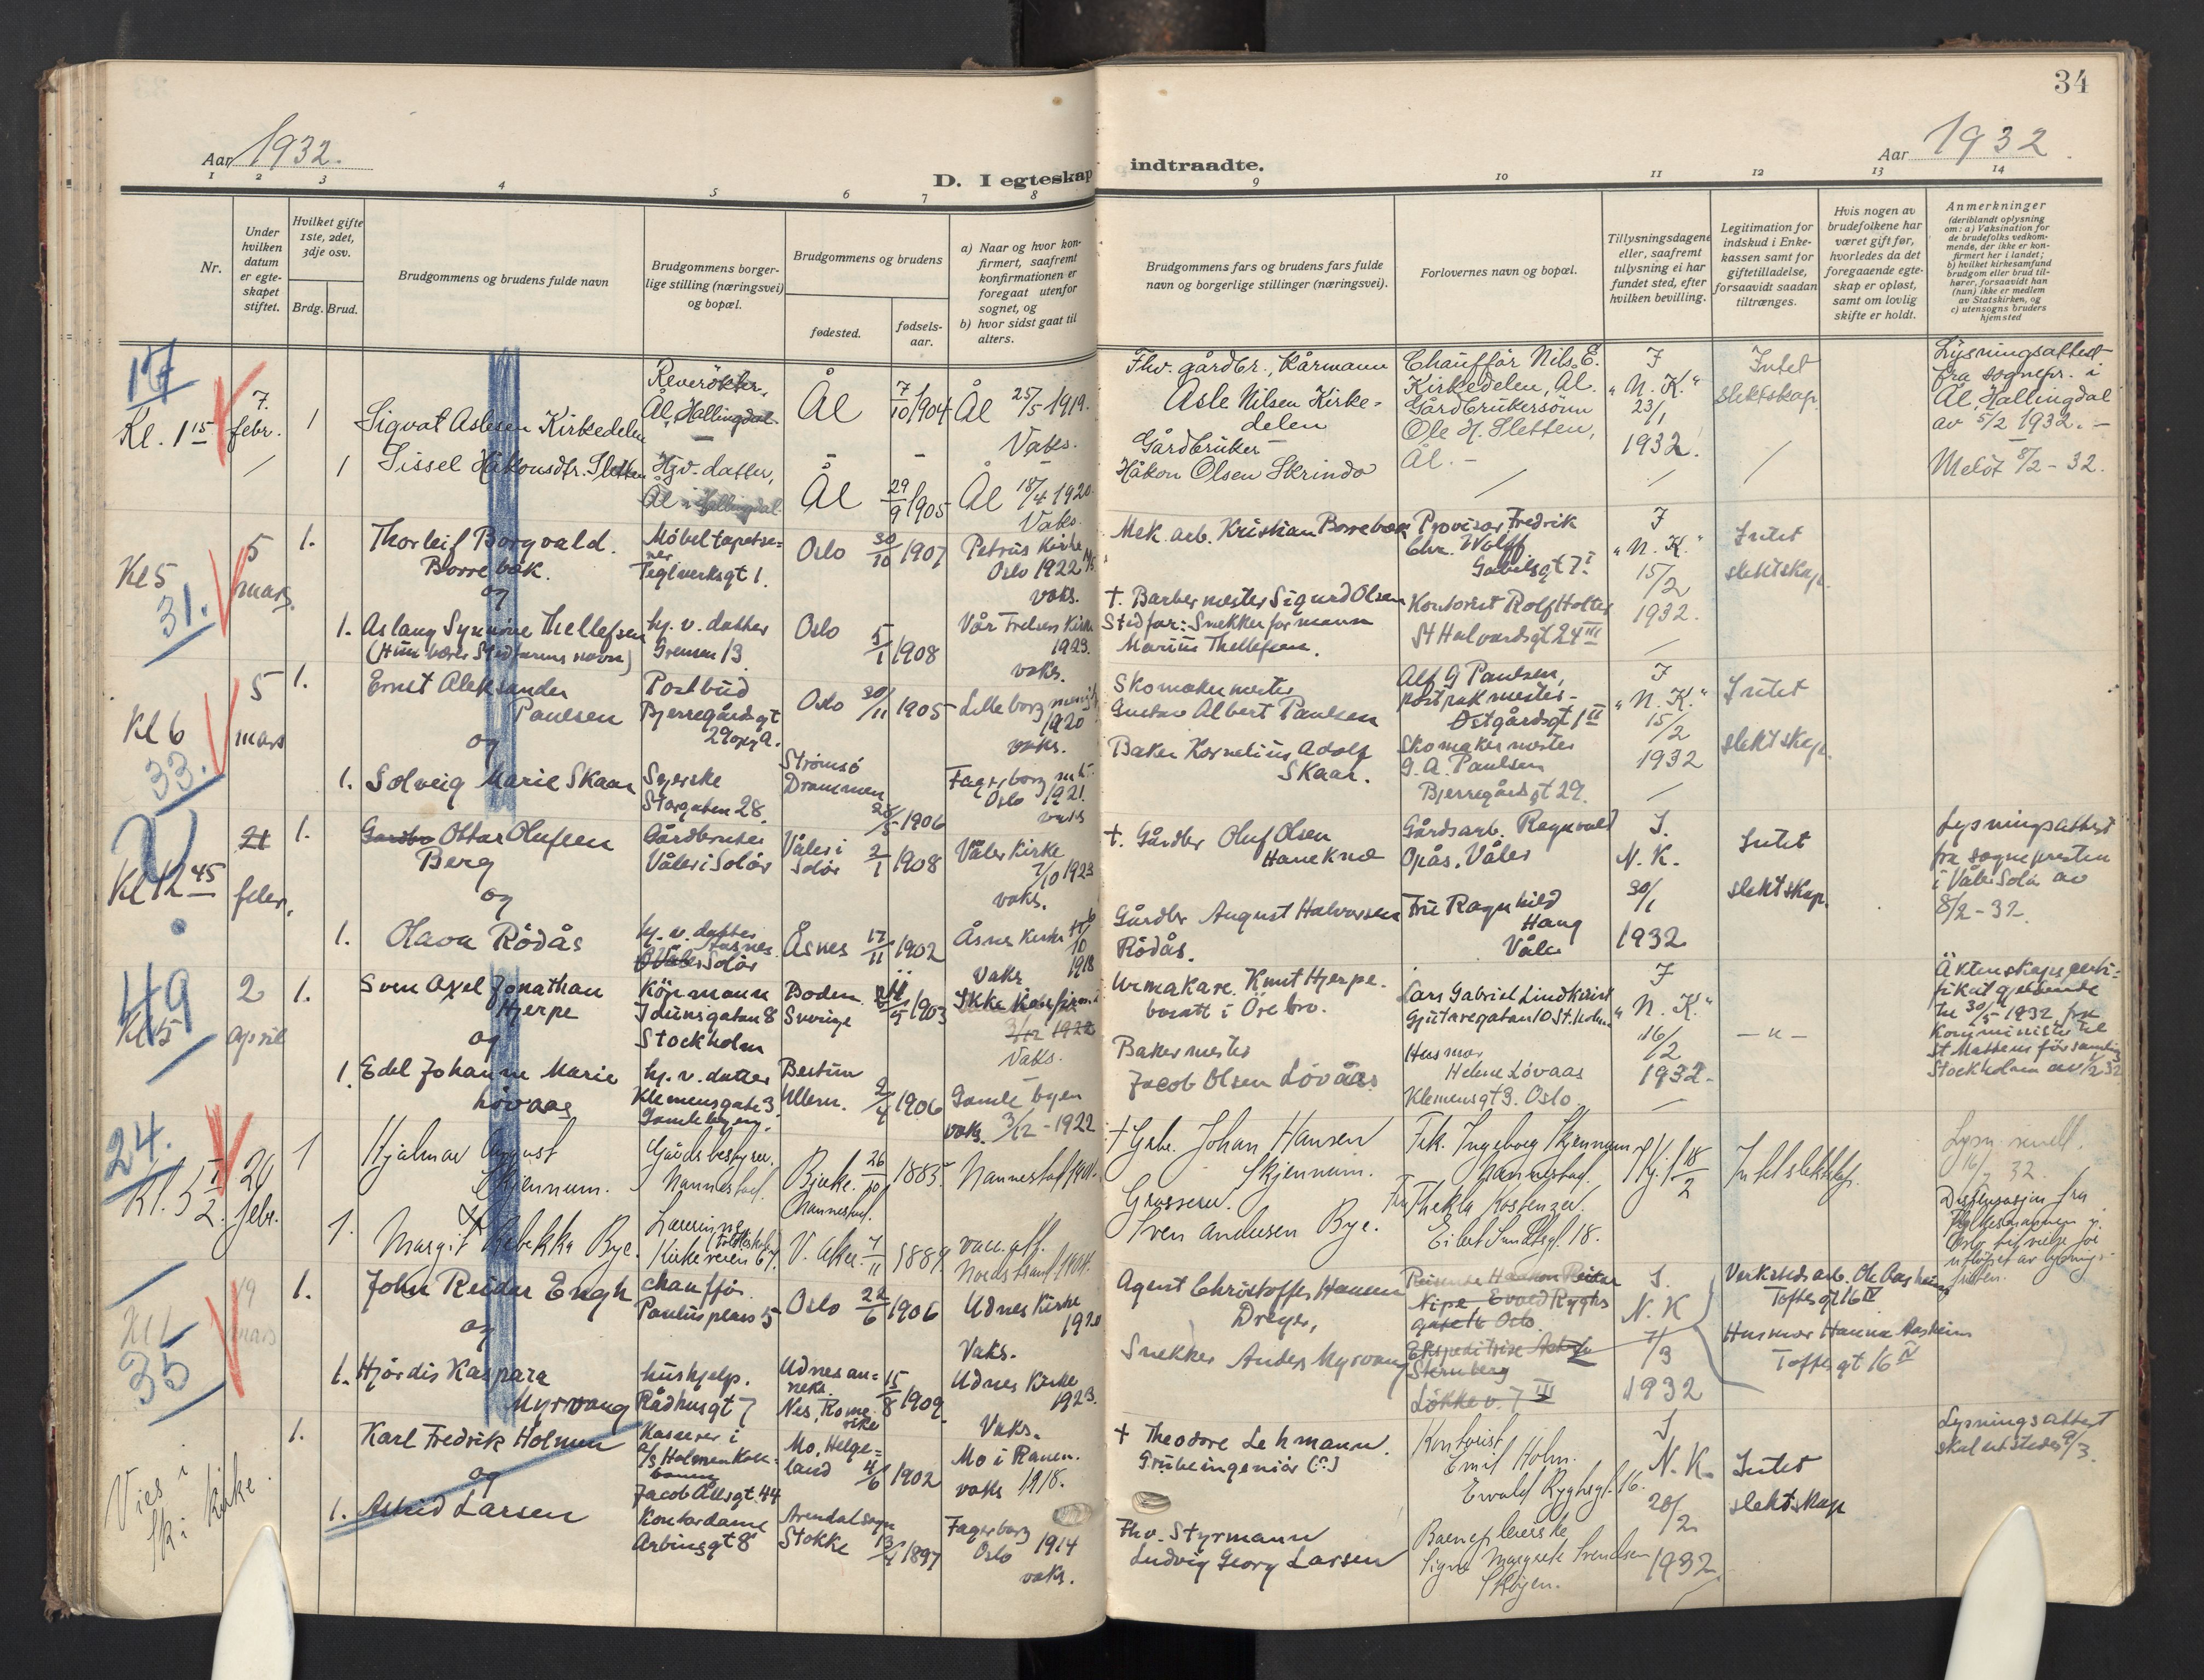 34
Aar 1932.
D. I egteskap indtraadte.
Aar 1932.
1 2 3 4 5 6 7 8 9 10 11 12 13 14
Nr.
Under hvilken datum er egteskapet stiftet.
Hvilket gifte 1ste, 2det, 3dje osv.
Brdg. Brud.
Brudgommens og brudens fulde navn
Brudgommens borgerlige stilling (næringsvei) og bopæl.
Brudgommens og brudens
fødested.
fødselsaar.
a) Naar og hvor konfirmert, saafremt konfirmationen er foregaat utenfor sognet, og
b) hvor sidst gaat til alters.
Brudgommens fars og brudens fars fulde navn og borgerlige stillinger (næringsvei).
Forlovernes navn og bopæl.
Tillysningsdagene eller, saafremt tillysning ei har fundet sted, efter hvilken bevilling.
Legitimation for indskud i Enkekassen samt for giftetilladelse, forsaavidt saadan tiltrænges.
Hvis nogen av brudefolkene har været gift før, hvorledes da det foregaaende egteskap er opløst, samt om lovlig skifte er holdt.
Anmerkninger
(deriblandt oplysning om: a) Vaksination for de brudefolks vedkommende, der ikke er konfirmert her i landet;
b) hvilket kirkesamfund brudgom eller brud tilhører, forsaavidt han (hun) ikke er medlem av Statskirken, og
c) utensogns bruders hjemsted
17
Kl. 1 15
7. febr.
1
Sigvat Aslesen Kirkedelen
Reverøkter,
Ål, Hallingdal
Ål
7/10 1904
Ål 25/5 1919.
Vaks.
Fhv. gårdbr., kårmann
Asle Nilsen Kirkedelen
Chauffør Nils E.
Kirkedelen, Ål.
Gårdbrukersønn
Ole H. Sletten,
Ål.
I
"N. K."
23/1
1932.
Intet
slektskap.
Lysningsattest
fra sognepr. i
Ål, Hallingdal
av 5/2 1932.
Meldt 8/2 - 32.
1
Sissel Håkonsdtr. Sletten
Hjv. datter,
Ål i Hallingdal
Ål
29/9 1905
Ål 18/4 1920
Vaks.
Gårdbruker
Håkon Olsen Skrindo
Kl 5
31.
5 mars
1.
Thorleif Borgvald
Borrebæk.
og
Møbeltapetserer
Teglverksgt 1.
Oslo
30/10 1907
Petrus Kirke
Oslo 1922
vaks.
Mek. arb. Kristian Borrebæk
Provisor Fredrik
Chr. Wolff
Gabelsgt 7 I
I
"N. K."
15/2
1932.
Intet
slektskap.
1.
Aslaug Synnøve Thellefsen
(Hun bærer Stedfarens navn)
hj. v. datter
Grensen 13
Oslo
5/1 1908
Vår Frelsers Kirke
1923.
vaks.
† Barbermester Sigurd Olsen
Stedfar: Snekkerformann
Marius Thellefsen.
Kontorist Rolf Holter
St Halvardsgt 24 III
Kl 6
33.
5 mars
1.
Ernst Aleksander
Paulsen
og
Postbud
Bjerregårdsgt
29 opg A.
Oslo
30/11 1905
Lilleborg menigh
1920
vaks.
Skomakermester
Gustav Albert Paulsen
Alf G Paulsen,
postpakmester
Østgårdsgt 1 II
I
"N. K."
15/2
1932
Intet
slektskap.
1.
Solveig Marie Skaar
Syerske
Storgaten 28.
Strømsø
Drammen
1906
Fagerborg mh.
Oslo 1921.
vaks
Baker Kornelius Adolf
Skaar.
Skomakermester
G. A. Paulsen
Bjerregårdsgt 29.
Kl 12 45
21 febr.
1.
Ottar Olufsen
Berg
og
Gårdbruker
Våler i Solør
Våler i
Solør
2/1 1908
Våler Kirke
7/10 1923
vaks.
† Gårdbr Oluf Olsen
Haneknæ
Gårdsarb. Ragnvald
Opås. Våler
I.
N. K.
30/1
1932
Intet
slektskap.
Lysningsattest
fra sognepresten
i Våler Solør av
8/2 - 32.
1.
Olava Rødås
hj. v. datter
Åsnes
Solør
Åsnes
17/11 1902
Åsnes Kirke
1918
Vaks
Gårdbr August Halvorsen
Rødås.
Fru Ragnhild
Haug
Våler
49
Kl 5
2 april
1.
Sven Axel Jonathan
Hjerpe
og
Köpmann
Idunsgatan 8
Stockholm
Boden
Sverige
1903
Ikke konfirm.
3/12 1922
Vaks.
Urmakare. Knut Hjerpe.
bosatt i Örebro.
Lars Gabriel Lindkvist
Gjutaregatan 10 St. holm
I
"N. K."
16/2
1932.
- " -
Äktenskapscertifikat gjeldende
til 30/5 1932 fra
Kommininister til
St Matteus församling
Stockholm av
1.
Edel Johanne Marie
Løvaas
hj. v. datter
Klemensgate 3
Gamlebyen.
Bestum
Ullern.
2/4 1906
Gamlebyen
vaks. 3/12 - 1922
Bakermester
Jacob Olsen Løvaas
Husmor
Helene Løvaas
Klemensgt 3. Oslo.
24.
Kl. 5 1/2
26 febr.
1
Hjalmar August
Skjennum.
Gårdsbestyrer.
Nannestad.
Bjerke.
Nannestad.
26/10 1885.
Nannestad 1901.
† Gbr. Johan Hansen
Skjennum.
Frk. Ingeborg Skjennum
Nannestad.
18/2
Intet slektskap.
Dispensasjon fra
1.
Margit Rebekka Bye.
Lærerinne
Kirkeveien 67.
V. Aker.
7/11 1889
Nordstrand 1904.
Grosserer.
Sven Andersen Bye.
Fru Thekla Kostenzer.
Eilert Sundtsgt. 18.
Kl 1
35
19 mars
1.
John Reidar Engh
og
chauffør
Paulus plass 5
Oslo
22/6 1906
Udnes Kirke
1920
Vaks.
Agent Christoffer Hansen
Dreyer,
Reisende Haakon Reidar
Nipe Evald Ryghs
gate 16 Oslo.
I.
N. K
7/3
1932
Verkstedsarb. Ole Aasheim
Toftesgt 16 IV
Husmor Hanna Aasheim
Toftesgt 16 IV
1.
Hjørdis Kaspara
Myrvang
hushjelp.
Rådhusgt 7
Udnes anneks.
Nes, Romerike
15/8 1902
Udnes Kirke
1923.
Vaks.
Snekker Anders Myrvang
Ekspeditrise
Stenberg
Løkkev. 7 III
Vies i
Ski kirke.
1.
Karl Fredrik Holmen
og
Kasserer i
A/S Holmenkolbanen
Jacob Allsgt. 44
Mo, Helgeland
4/6 1902
Mo i Ranen.
vaks 1918.
† Theodore Lehmann.
Grubeingeniør (?)
Kontorist
Emil Holm.
Ewald Ryghsgt. 16.
I
N. K.
20/2
1932.
Intet
slektskap
Lysningsattest
skal utstedes 9/3.
1.
Astrid Larsen
Kontordame
Arbinsgt 8
Arendal sogn
Stokke
13/4 1897
Fagerborg
Oslo 1914
vaks.
Fhv. Styrmann
Ludvig Georg Larsen
Barnepleierske
Signe Margrete Svendsen
Skøyen.